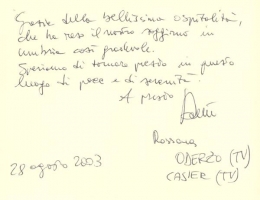 Grazie della bellissima ospitalità,
che ha reso il nostro soggiorno in
umbria così gradevole.
Speriamo di tornare presto in questo
luogo di pace e di serenità.
A presto
Rossana
ODERZO (TV)
28 agosto 2003
CASIER (TV)